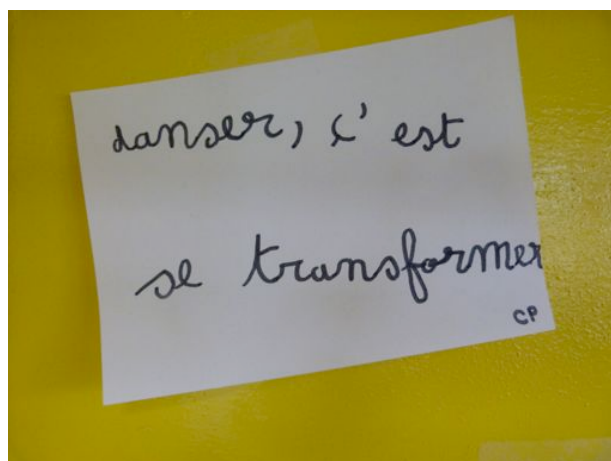 danser, c'est
se transformer
CP